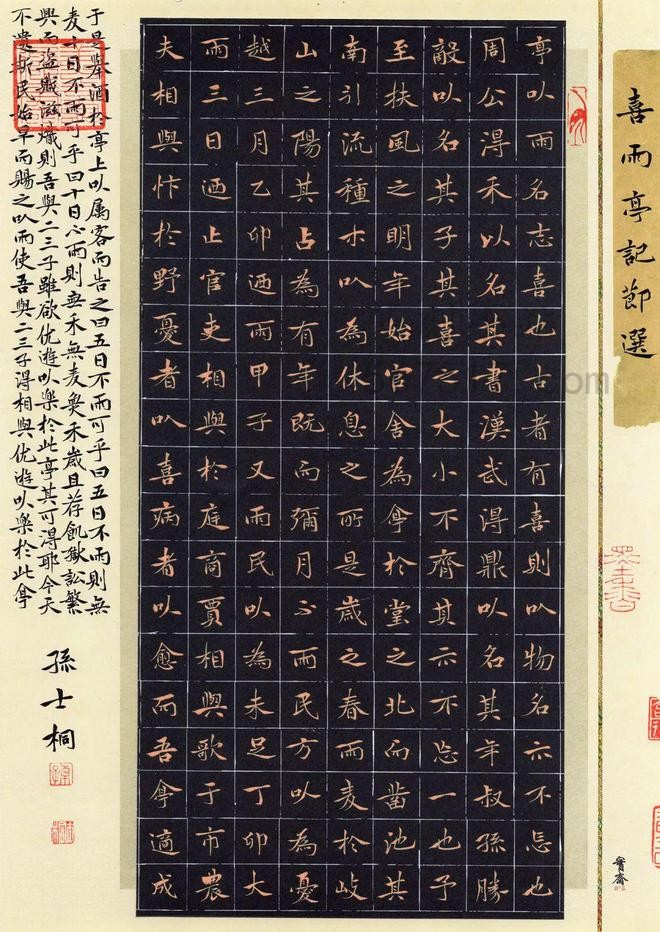 喜雨亭記莭選
亭以雨名志喜也古者有喜則以物名示不忘也
周公得禾以名其書漢武得鼎以名其年叔孫勝
敵以名其子其喜之大小不齊其示不忘一也予
至扶風之明年始官舍為亭於堂之北而鑿池其
南引流種木以為休息之所是歲之春雨麦於岐
山之陽其占為有年既而彌月不雨民方以為憂
越三月乙卯迺雨甲子又雨民以為未足丁卯大
雨三日迺止官吏相與於庭商賈相與歌于市農
夫相與忭於野憂者以喜病者以愈而吾亭適成
于是舉酒於亭上以属客而告之曰五日不雨可乎曰五日不雨則無
麦十日不雨可乎曰十日不雨則無禾無麦無禾歲且荐飢獄訟繁
興而盜賊滋熾則吾與二三子雖欲优遊以樂於此亭其可得耶今天
不遺斯民始旱而賜之以雨使吾與二三子得相與优遊以樂於此亭
孫士桐